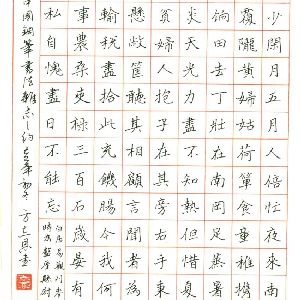 少閑月五月人倍忙夜來南
覆隴黃婦姑荷簞食童稚攜
餉田去丁壯在南岡足蒸暑
炎天光力盡不知熱但惜夏
貧婦人抱子在其旁右手秉
懸敝筐聽其相顧言聞者為
輸稅盡拾此充飢腸今我何
事農桑吏祿三百石歲晏有
私自愧盡日不能忘
白居易觀刈麥
時為盩厔縣尉
中國鋼筆書法雜志之約